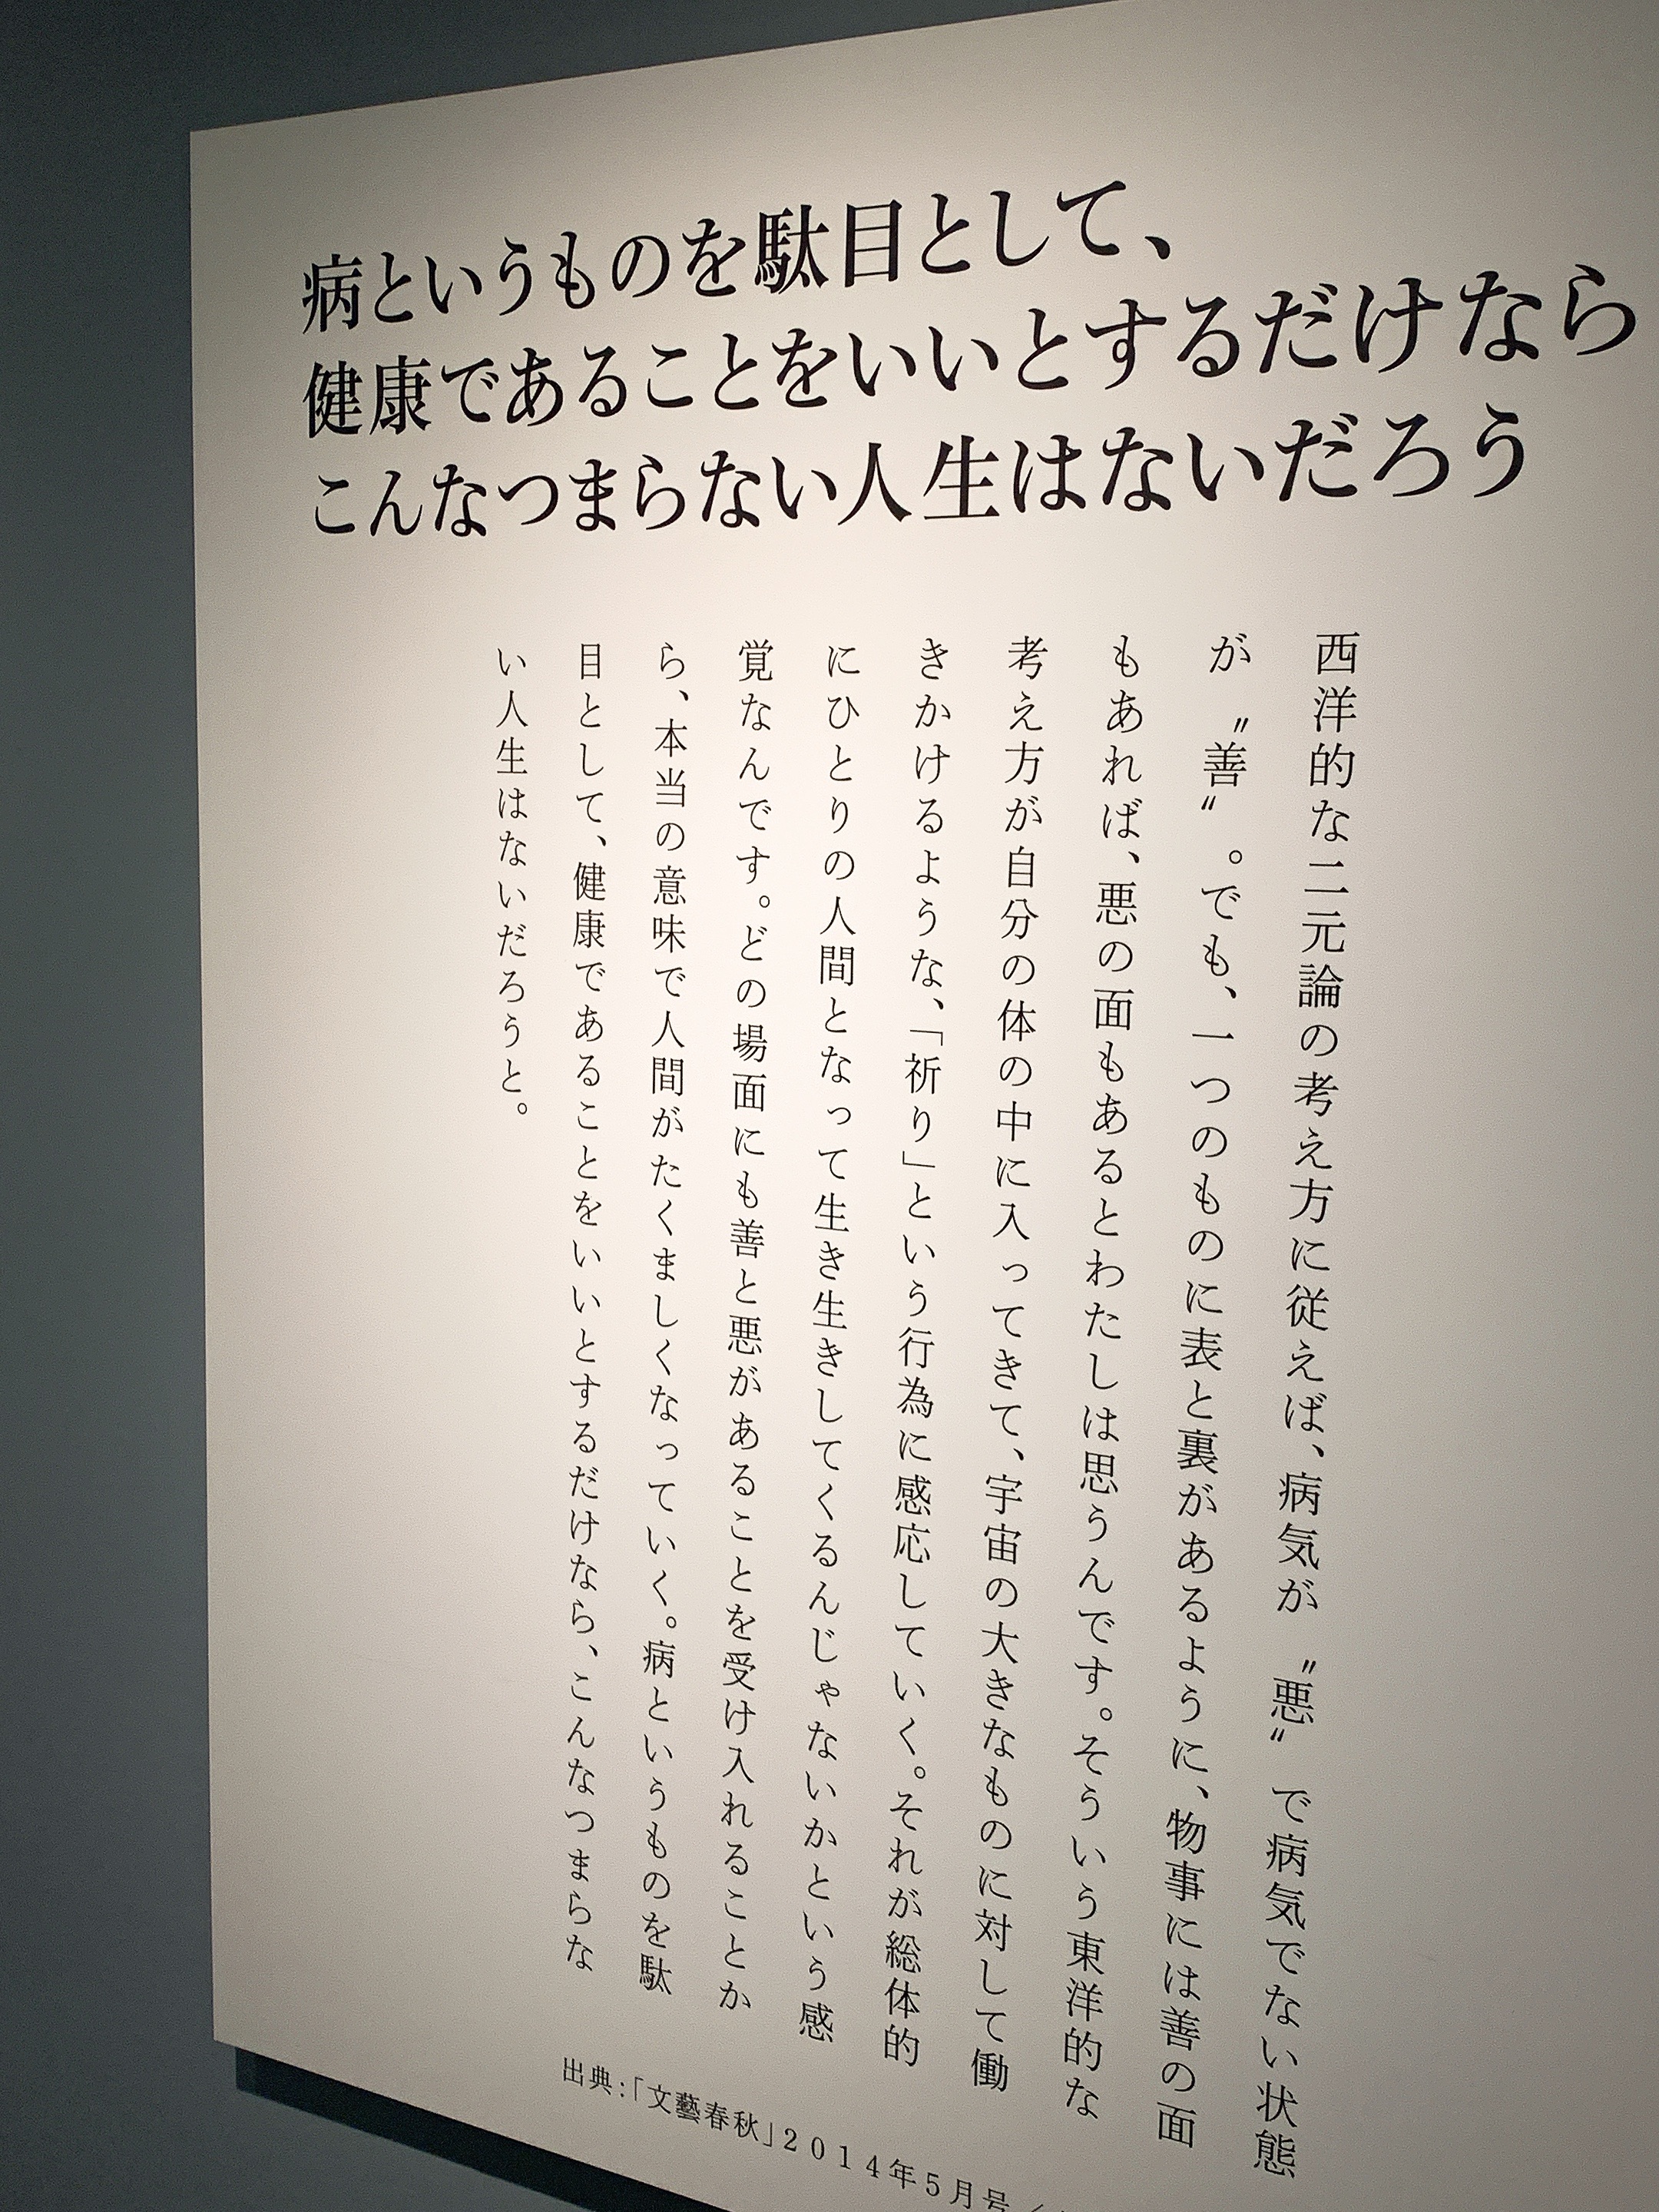 病というものを駄目として、
健康であることをいいとするだけなら
こんなつまらない人生はないだろう
西洋的な二元論の考え方に従えば、病気が〝悪〟で病気でない状態
が〝善〟。でも、一つのものに表と裏があるように、物事には善の面
もあれば、悪の面もあるとわたしは思うんです。そういう東洋的な
考え方が自分の体の中に入ってきて、宇宙の大きなものに対して働
きかけるような、「祈り」という行為に感応していく。それが総体的
にひとりの人間となって生き生きしてくるんじゃないかという感
覚なんです。どの場面にも善と悪があることを受け入れることか
ら、本当の意味で人間がたくましくなっていく。病というものを駄
目として、健康であることをいいとするだけなら、こんなつまらな
い人生はないだろうと。
出典:「文藝春秋」2014年5月号